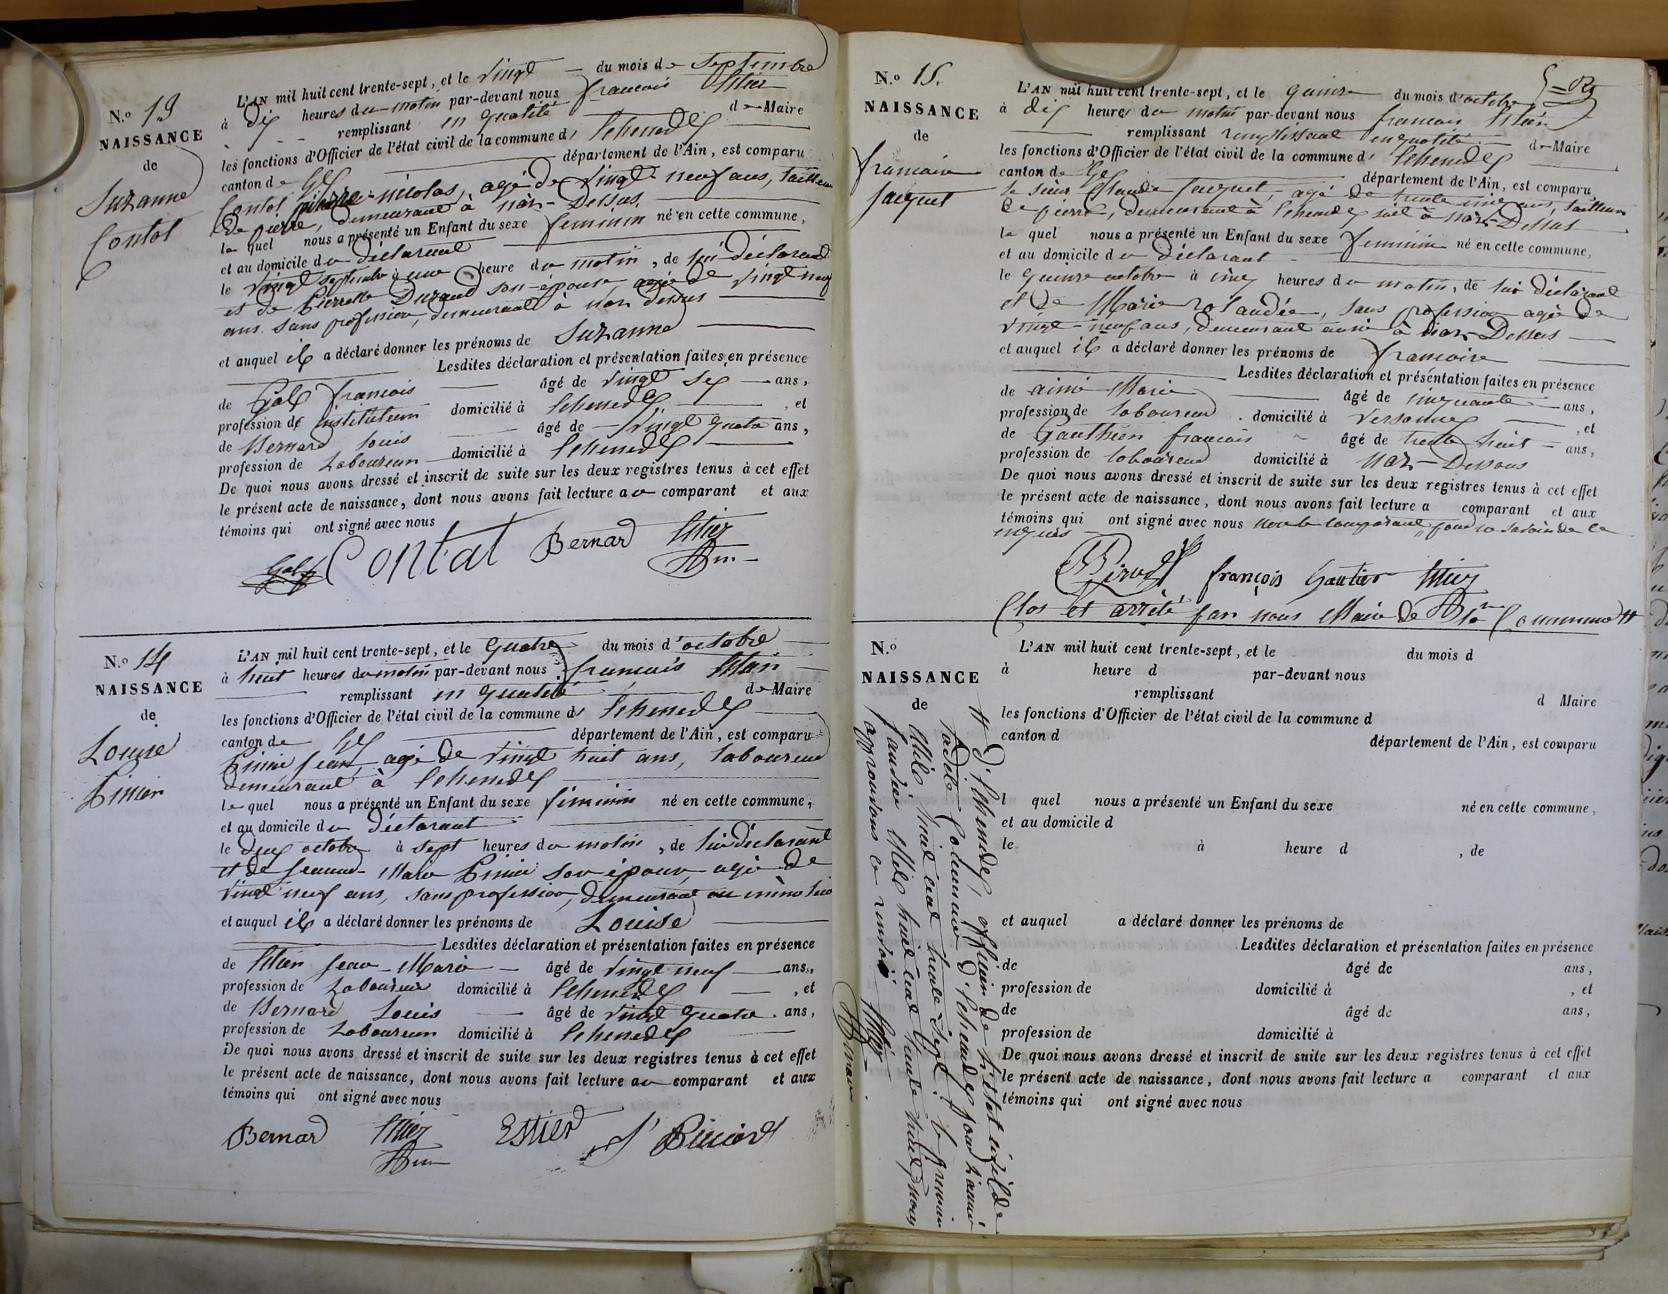 N.º 13
NAISSANCE
de
Suzanne
Contat
L'AN mil huit cent trente-sept, et le vingt du mois de septembre
à dix heures du matin par-devant nous francois
remplissant en qualité de Maire
les fonctions d'Officier de l'état civil de la commune d' Echenevex
canton de Gex département de l'Ain, est comparu
Contat pierre-nicolas, agé de vingt neuf ans, tailleur
de pierre, demeurant à naz-Dessus,
le quel nous a présenté un Enfant du sexe feminin né en cette commune,
et au domicile du déclarant
le vingt septembre à une heure du matin, de lui déclarant
et de Pierrette Durand son épouse agée de vingt neuf
ans sans profession, demeurant à naz dessus
et auquel il a déclaré donner les prénoms de Suzanne
Lesdites déclaration et présentation faites en présence
de Galy francois âgé de vingt six ans,
profession de instituteur domicilié à Echenevex, et
de Bernard Louis âgé de vingt quatre ans,
profession de Laboureur domicilié à Echenevex
De quoi nous avons dressé et inscrit de suite sur les deux registres tenus à cet effet
le présent acte de naissance, dont nous avons fait lecture au comparant et aux
témoins qui ont signé avec nous
Galy Contat Bernard
N.º 14
NAISSANCE
de
Louise
L'AN mil huit cent trente-sept, et le quatre du mois d'octobre
à huit heures du matin par-devant nous francois
remplissant en qualité de Maire
les fonctions d'Officier de l'état civil de la commune d' Echenevex
canton de Gex département de l'Ain, est comparu
jean, agé de vingt huit ans, laboureur
demeurant à Echenevex
le quel nous a présenté un Enfant du sexe féminin né en cette commune,
et au domicile du déclarant
le deux octobre à sept heures du matin, de lui déclarant
et de jeanne Marie son épouse, agée de
vingt neuf ans, sans profession, demeurant au même lieu
et auquel il a déclaré donner les prénoms de Louise
Lesdites déclaration et présentation faites en présence
de jean-Marie âgé de vingt neuf ans,
profession de Laboureur domicilié à Echenevex, et
de Bernard Louis âgé de vingt quatre ans,
profession de Laboureur domicilié à Echenevex
De quoi nous avons dressé et inscrit de suite sur les deux registres tenus à cet effet
le présent acte de naissance, dont nous avons fait lecture au comparant et aux
témoins qui ont signé avec nous
Bernard Estier
N.º 15.
NAISSANCE
de
francoise
jacquet
L'AN mil huit cent trente-sept, et le quinze du mois d'octobre
à dix heures du matin par-devant nous francois
remplissant remplissant en qualité de Maire
les fonctions d'Officier de l'état civil de la commune d' Echenevex
canton de Gex département de l'Ain, est comparu
le sieur Claude jacquet, agé de trente cinq ans, tailleur
de pierre, demeurant à Echenevex soit à naz-Dessus
le quel nous a présenté un Enfant du sexe feminin né en cette commune,
et au domicile du déclarant
le quinze octobre à cinq heures du matin, de lui déclarant
et de Marie sans profession agée de
vingt-neuf ans, demeurant aussi à naz-Dessus
et auquel il a déclaré donner les prénoms de francoise
Lesdites déclaration et présentation faites en présence
de aimé Marie âgé de cinquante ans,
profession de laboureur domicilié à Versonnex, et
de Gauthier francois âgé de trente huit ans,
profession de laboureur domicilié à Naz-Dessous
De quoi nous avons dressé et inscrit de suite sur les deux registres tenus à cet effet
le présent acte de naissance, dont nous avons fait lecture a comparant et aux
témoins qui ont signé avec nous non le comparant pour ne savoir de ce
requis
françois Gautier
Clos et arrêté par nous Maire de la Commune #
N.º
NAISSANCE
de
L'AN mil huit cent trente-sept, et le du mois d
à heure d par-devant nous
remplissant d Maire
les fonctions d'Officier de l'état civil de la commune d
canton d département de l'Ain, est comparu
l quel nous a présenté un Enfant du sexe né en cette commune,
et au domicile d
le à heure d , de
et auquel a déclaré donner les prénoms de
Lesdites déclaration et présentation faites en présence
de âgé de ans,
profession de domicilié à , et
de âgé de ans,
profession de domicilié à
De quoi nous avons dressé et inscrit de suite sur les deux registres tenus à cet effet
le présent acte de naissance, dont nous avons fait lecture a comparant et aux
témoins qui ont signé avec nous
# d'Echenevex officier de l'état civil de
ladite Commune d'Echenevex pour l'année
Mile huit cent trente sept. le premier
janvier Mile huit cent trente huit, nous
approuvons ce renvoi